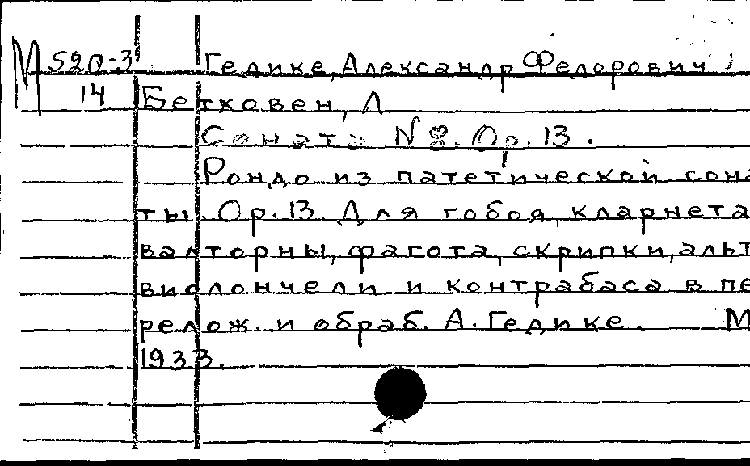 М 520-3 Гедике, Александр Федорович
14 Бетховен, Л
Соната № 8. Op. 13.
Рондо из патетической сона
ты. Op. 13. Для гобоя, кларнета
валторны, фагота, скрипки, альт
виолончели и контрабаса в пе
релож. и обраб. А. Гедике. М
1933.